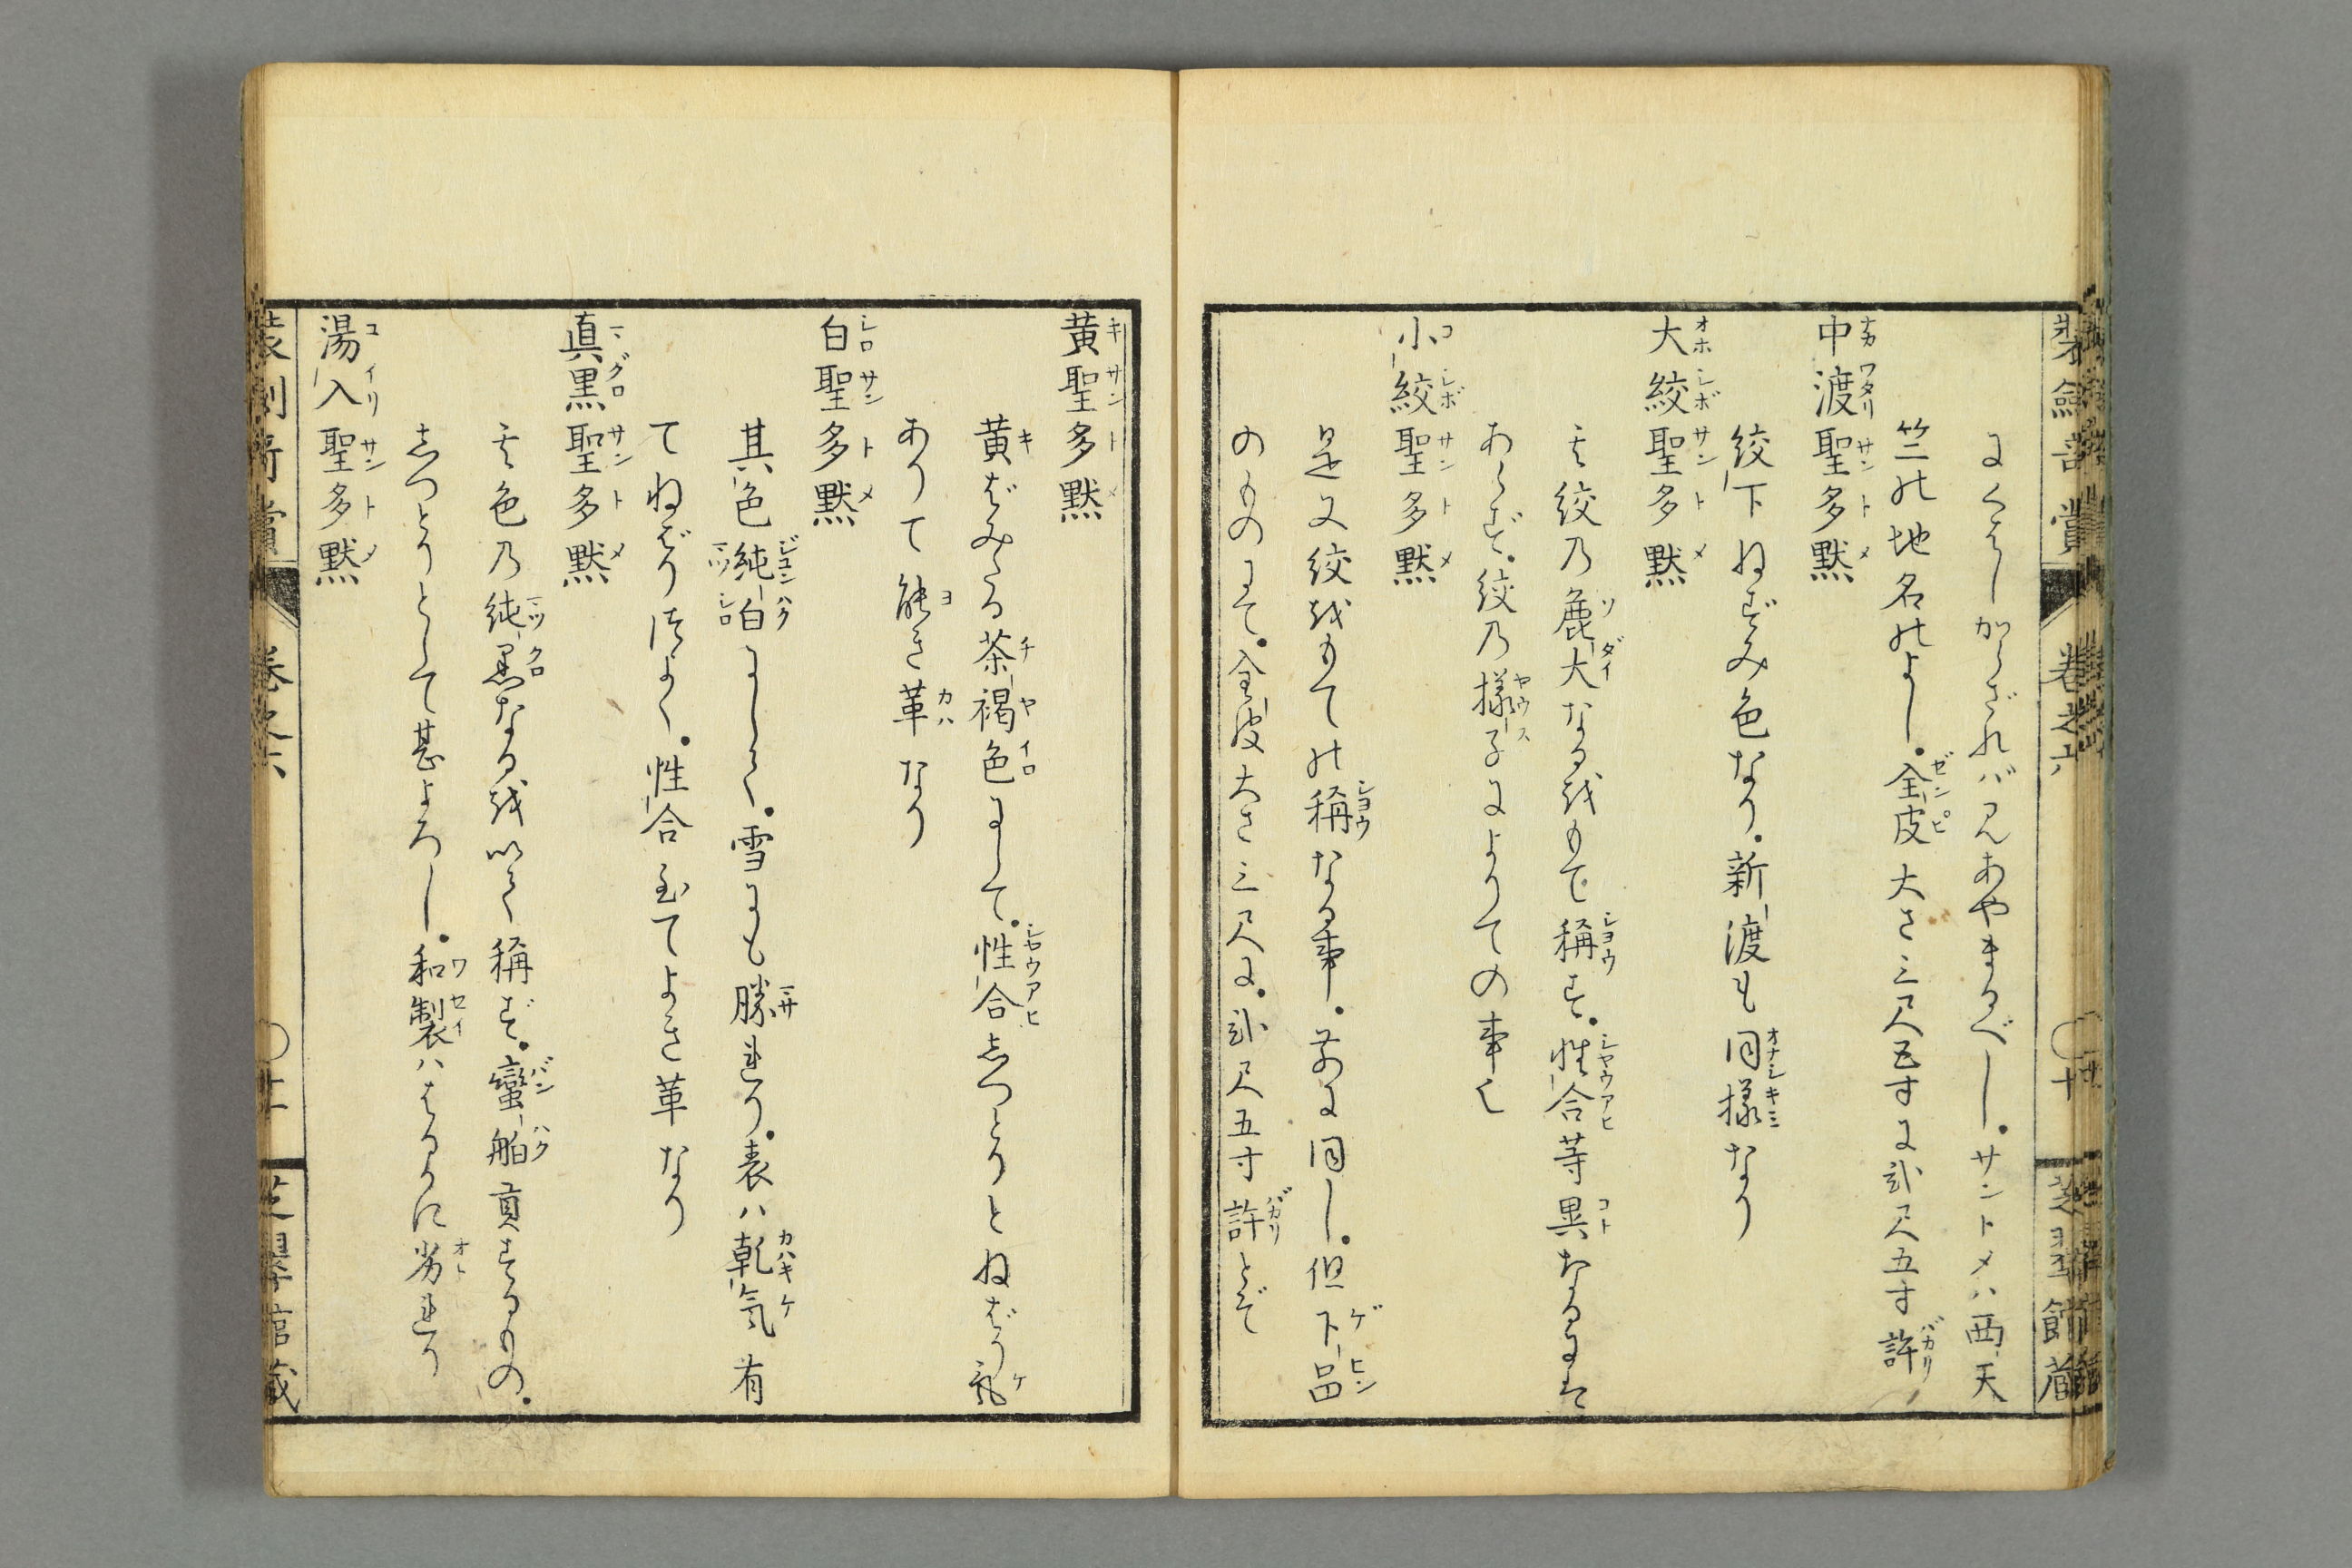 にくはしからざればみんあやまるべし。サントメハ西天
竺の地名のよし。全皮大さ三尺五寸に弐尺五寸許
中渡聖多黙
絞下ねずみ色なり。新渡も同様なり
大絞聖多黙
其絞乃麁大なるをもて稱す。性合等異なるにハ
あらず。絞乃様子によりての事也
小絞聖多黙
是又絞をもての稱なる事し。前に同し。但下品
のものにて。全皮大さ三尺に。弐尺五寸許とぞ
黄聖多黙
黄ばみたる茶褐色にして。性合しつとりとねばり氣
ありて能き革なり
白聖多黙
其色純白にして。雪にも勝れり。表ハ乾氣有
てねばりつよく。性合至てよき革なり
真黒聖多黙
其色乃純黒なるを以て稱ず。蠻舶貢するもの。
しつとりとして甚よろし。和製ハはるかに劣れり
湯入聖多黙
装劍奇賞 巻之六 十